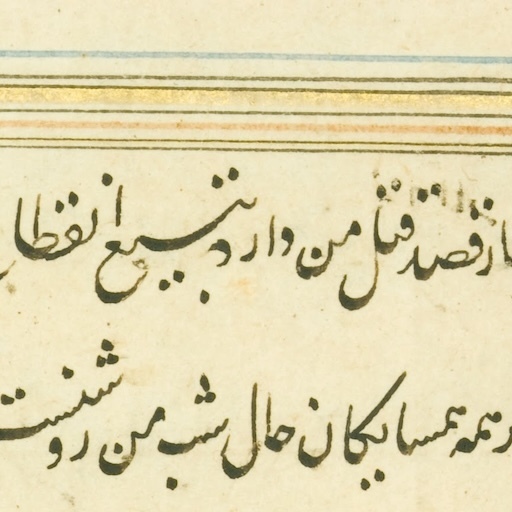 از قصد قتل من دارد بتیغ انتظار
همه همسایکان حال شب من روشنست